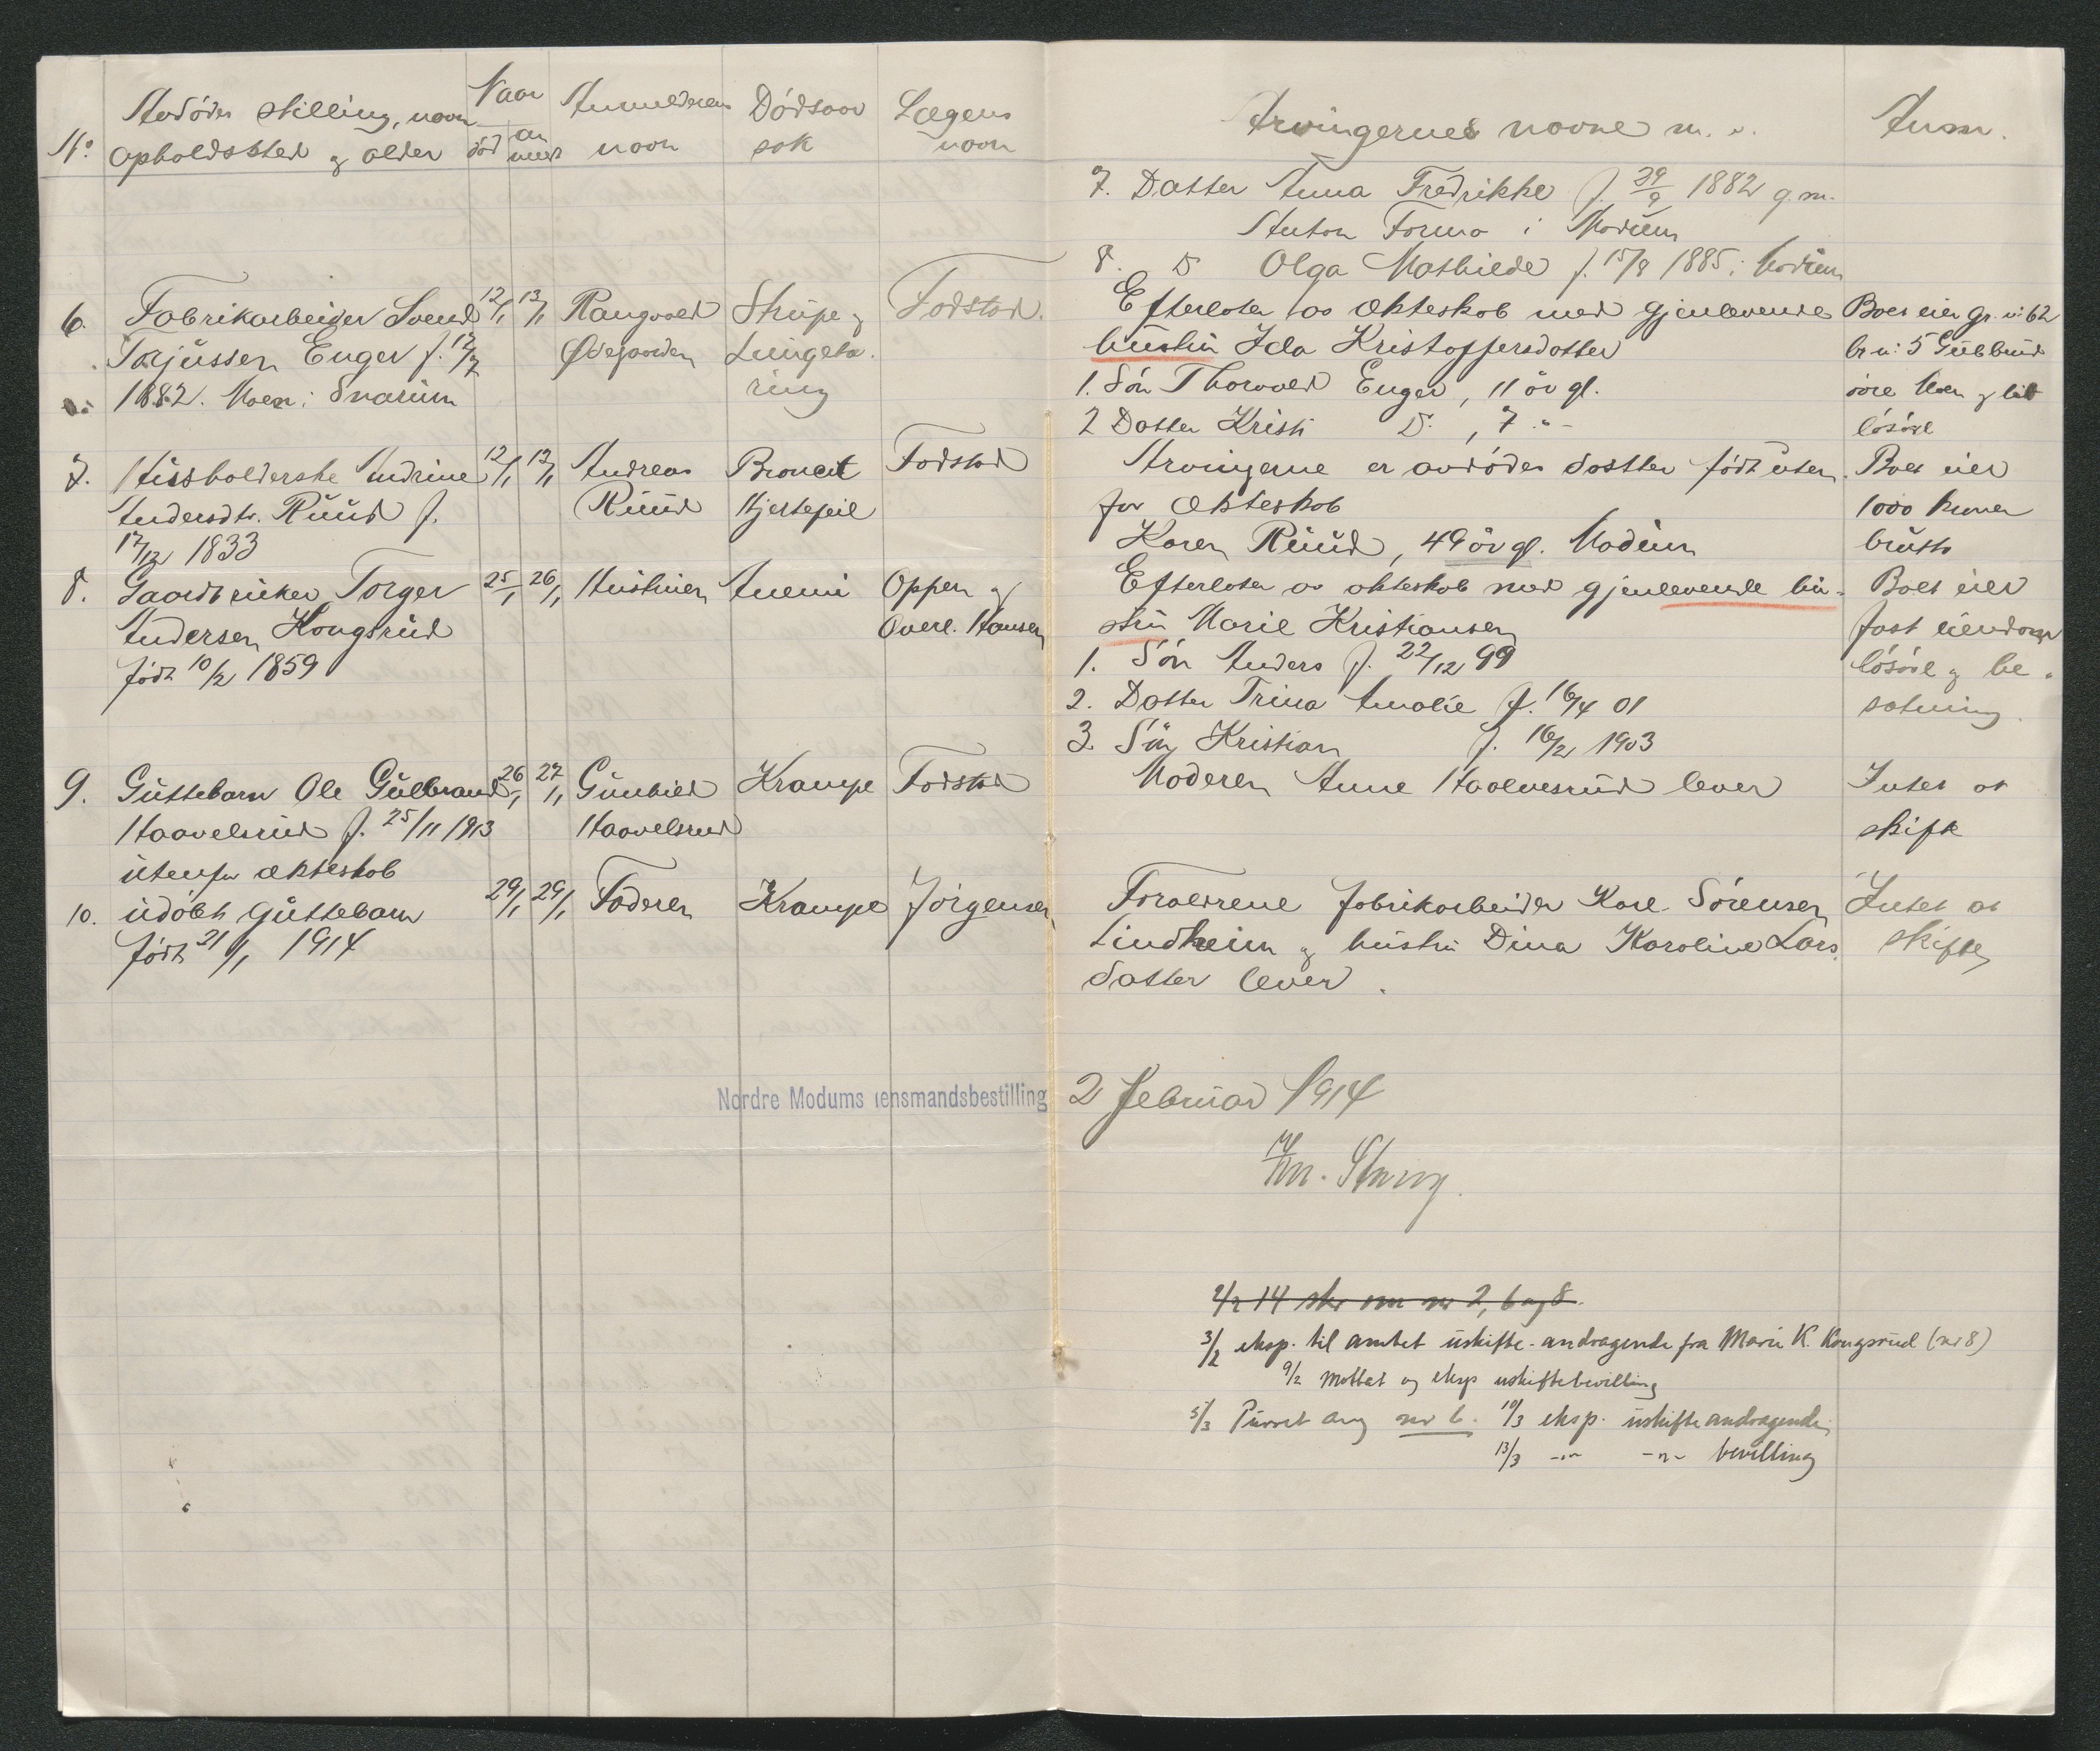 No
Avdødes stilling, navn
opholdssted og alder
Naar
død
an
meldt
Anmelderens
navn
Dødsaar
sak
Lægens
navn
Arvingernes navne m. v.
Anm.
7. Datter Anna Fredrikke f. 29/9 1882 g.m.
Anton Formo i Modum
8. D Olga Mathilde f. 15/8 1885 i Modum
6. Fabrikarbeider Svend
Torjussen Enger f. 12/7
1882. Moen i Snarum
12/1 13/1
Rangvald
Ødegaarden
Strupe og
Lungetæ-
ring
Fodstad.
Efterlater av ekteskab med gjenlevende
hustru Ida Kristoffersdatter
1. Søn Thorvald Enger, 11 år gl.
2 Datter Kristi D. , 7 " -
Boet eier gr. n: 62
br n: 5 Gubberud
øvre Moen og litt
løsøre
7. Husholderske Andrine
Andersdtr. Ruud f.
17/12 1833
12/1 12/1
Andreas
Ruud
Broncit
Hjertefeil
Fodstad
Arvingerne er avdødes datter født uten-
for ekteskab
Karen Ruud, 49 år gl. Modum
Boet eier
1000 kroner
brutto
8. Gaardbruker Torger
Andersen Kongsrud
født 10/2 1859
25/1 26/1
Hustruen
Anemi
Oppen og
Overl. Hansen
Efterlater av ekteskab med gjenlevende hu-
stru Marie Kristiansen
1. Søn Anders f. 22/12 99
2. Datter Trina Amalie f. 16/4 01
3. Søn Kristian f. 16/2 1903
Boet eier
fast eiendom
løsøre og be-
sætning.
9. Guttebarn Ole Gulbrand
Haavelsrud f. 25/11 1913
utenfor ekteskab
26/1 27/1
Gunhild
Haavelsrud
Krampe
Fodstad
Moderen Anne Haavelsrud lever
Intet at
skifte
10. udøbt guttebarn
født 21/1 1914
29/1 29/1
Faderen
Krampe
Jørgensen
Forældrene fabrikarbeider Karl Sørensen
Lindheim og hustru Dina Karoline Lars-
datter lever.
Intet at
skifte
Nordre Modums lensmandsbestilling 2 februar 1914
2/2 14 skr om nr 2, 6 og 8.
3/2 eksp. til amtet uskifte-andragende fra Marie K. Kongsrud (nr 8)
9/2 mottat og eksp uskiftebevilling
5/3 Purret ang nr 6. 10/3 eksp. uskifteandragende
13/3 -"- -"- bevilling